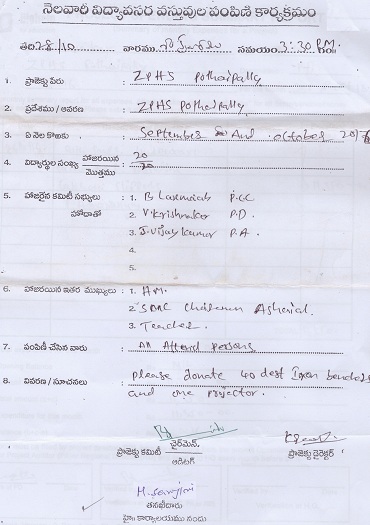 నెలవారీ విద్యావసర వస్తువుల పంపిణీ కార్యక్రమం
తేది: 28/10 వారము సమయం 3:30 P.M.
1. ప్రాజెక్టు పేరు : ZPHS Potharpally
2. ప్రదేశము / ఆవరణ : ZPHS Potharpally
3. ఏ నెల కొఱకు : September And October 2017
4. విద్యార్థుల సంఖ్య హాజరయిన 20
మొత్తము 20
5. హాజరైన కమిటీ సభ్యులు : 1. B Laxmaiah P.CC
హోదాతో 2. V. Krishnakar P.D.
3. J. Vijay Kumar P.A.
4.
5.
6. హాజరయిన ఇతర ముఖ్యులు : 1. H.M.
2. SMC Chairman
3. Teacher.
7. పంపిణీ చేసిన వారు : All Attend Persons
8. వివరణ / సూచనలు : Please donate 40 dest Iron benches
and one projector.
ప్రాజెక్టు కమిటీ చైర్మెన్, ప్రాజెక్టు డైరెక్టర్
ఆడిటర్
M. Sarojini
తనిఖీదారు
హై॥ కార్యాలయము నందు